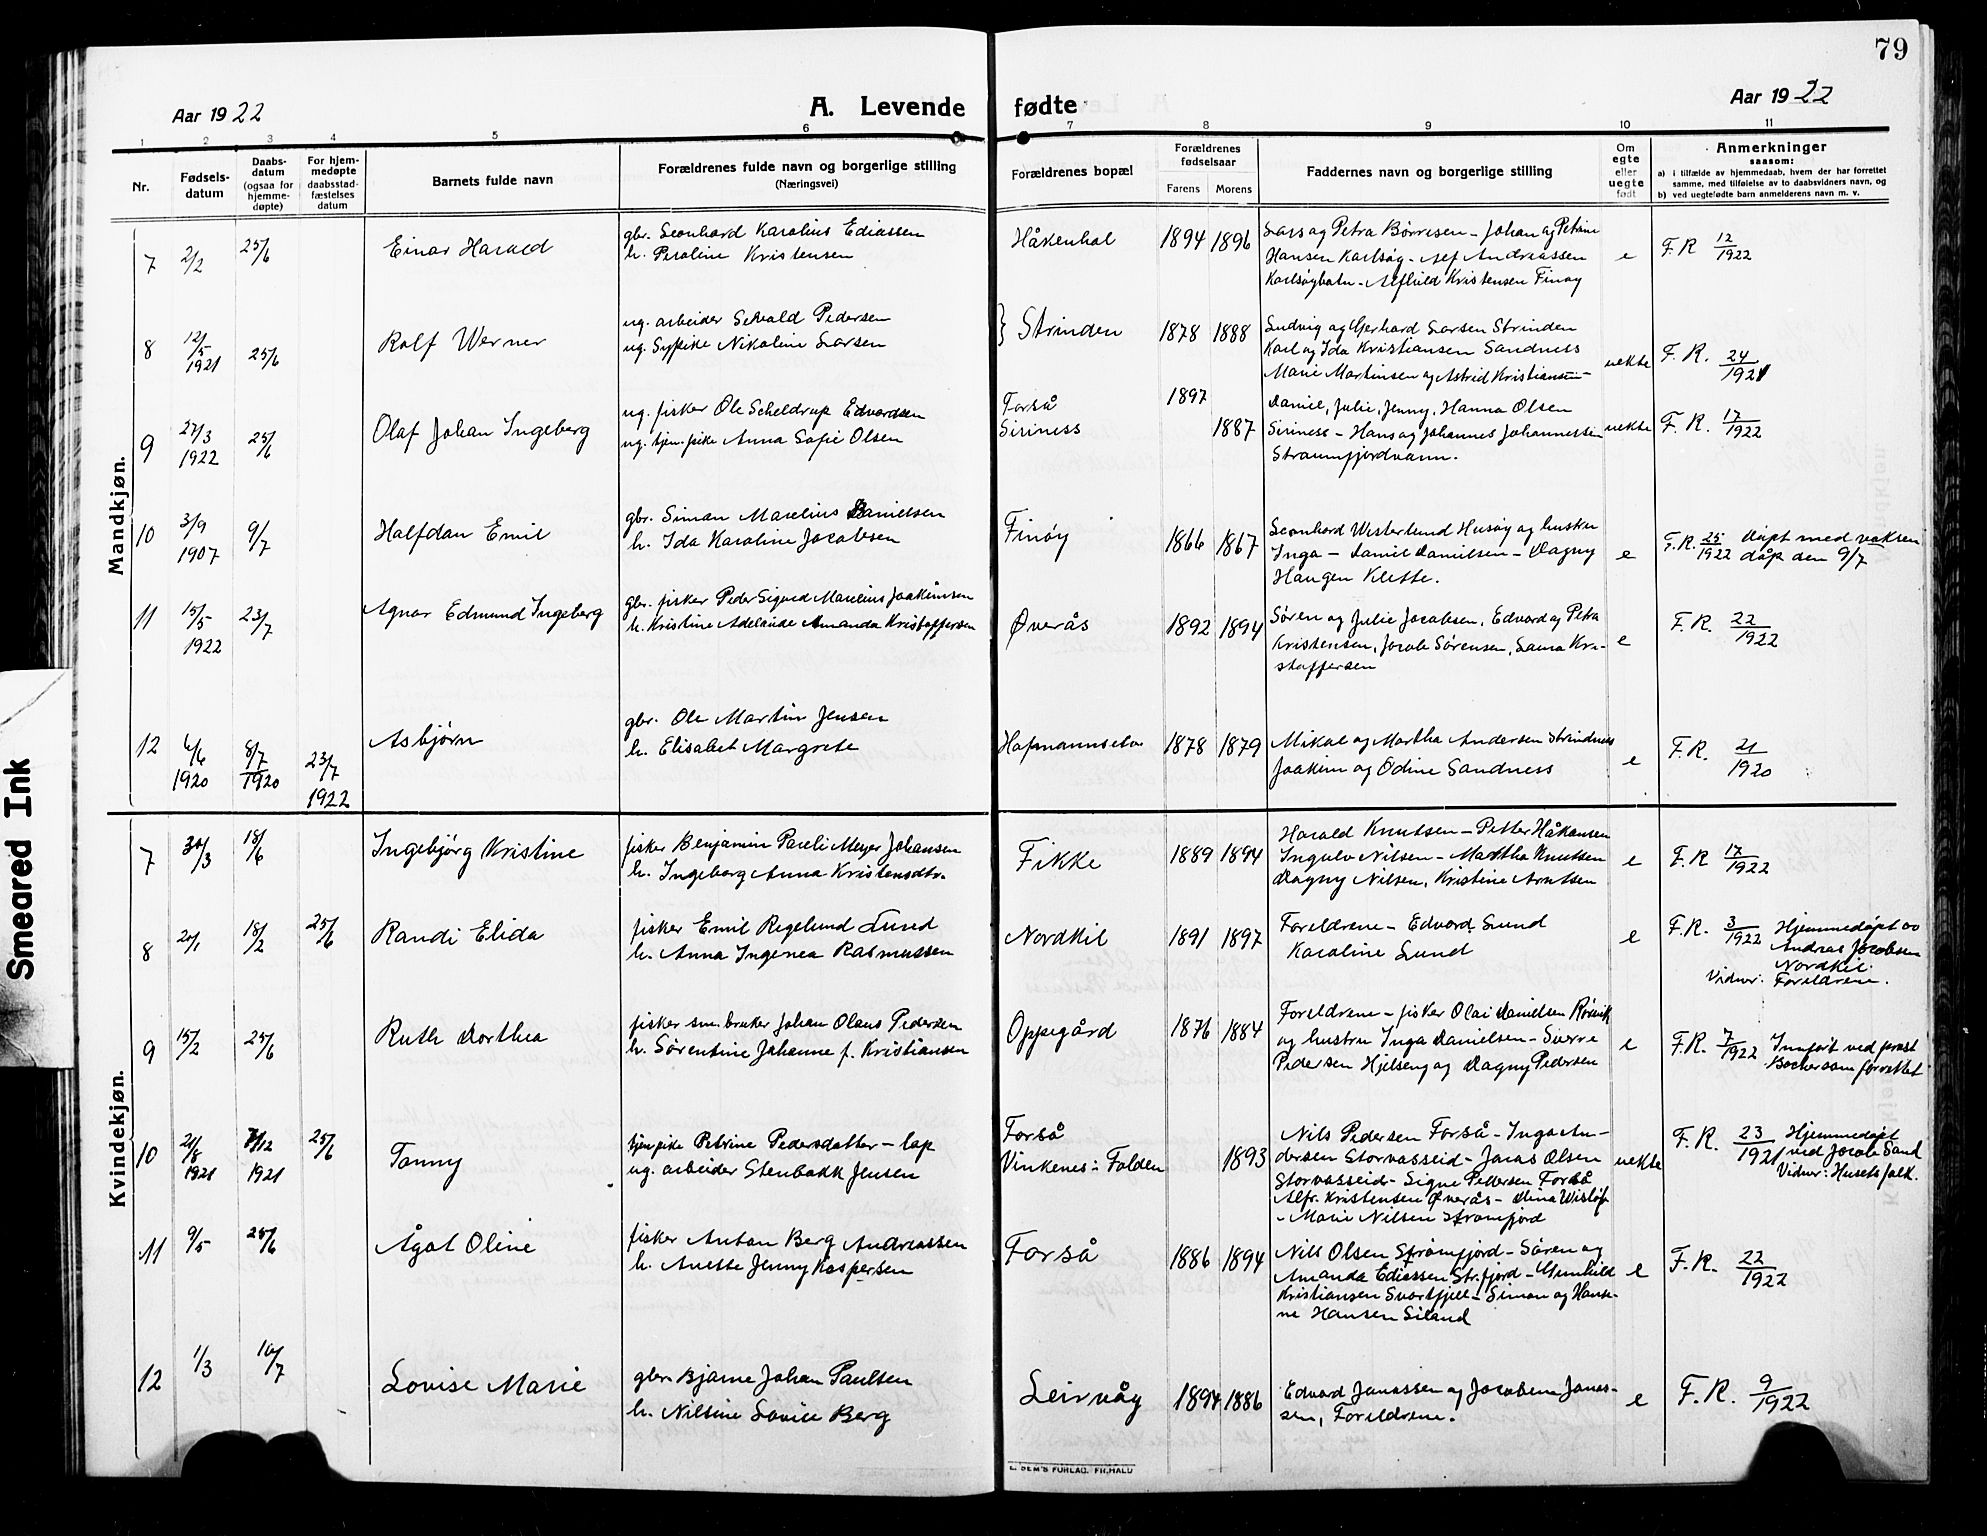 79
Aar 1922
A. Levende fødte
Aar 1922
1 2 3 4 5 6 7 8 9 10 11
Nr.
Fødsels-
datum
Daabs-
datum
(ogsaa for
hjemme-
døpte)
For hjem-
medøpte
daabsstad-
fæstelses
datum
Barnets fulde navn
Forældrenes fulde navn og borgerlige stilling
(Næringsvei)
Forældrenes bopæl
Forældrenes
fødselsaar
Farens Morens
Faddernes navn og borgerlige stilling
Om
egte
eller
uegte
født
Anmerkninger
saasom:
a) i tilfælde av hjemmedaab, hvem der har forrettet
samme, med tilføielse av to daabsvidners navn, og
b) ved uegtefødte barn anmelderens navn m. v.
Mandkjøn.
7 2/2 25/6 Einar Harald
gbr. Leonhard Karolius Ediassen
h. Paroline Kristensen
Håkenhol 1894 1896
Lars og Petra Børresen - Johan og Petrine
Hansen Karlsøy - Alf Andreassen
Karlsøyvatn - Alfhild Kristensen Finøy
e F.R 12/1922
8 12/5 1921 25/6 Rolf Werner
ug. arbeider Sevald Pedersen
ug. Sypike Nikoline Larsen
} Strinden 1878 1888
Ludvig og Gerhard Larsen Strinden
Karl og Ida Kristiansen Sandness
Marie Martinsen og Astrid Kristiansen -
uekte F.R. 24/1921
9 27/3 1922 25/6 Olaf Johan Ingeberg
ug. fisker Ole Scheldrup Edvardsen
ug. tjen. pike Anna Sofie Olsen
Forså 1897
Siriness 1887
Daniel, Julie, Jenny, Hanna Olsen
Siriness - Hans og Johannes Johannessen
Straumfjordvann.
uekte F.R. 17/1922
10 3/9 1907 9/7 Halfdan Emil
gbr. Simon Marelius Danielsen
h. Ida Karoline Jacobsen
Finøy 1866 1867
Leonhard Westerlund Husøy og hustru
Inga - Daniel Danielsen - Dagny
Haugen Klette.
e F.R. 25/1922 døpt med voksen
dåp den 9/7
11 15/5 1922 23/7 Agnar Edmund Ingeberg
gbr. fisker Peder Sigurd Marelius Joakimsen
h. Kristine Adelaide Amanda Kristoffersen
Øverås 1892 1894
Søren og Julie Jacobsen, Edvard og Petra
Kristensen, Jacob Sørensen, Laura Kri-
stoffersen
e F.R. 22/1922
12 6/6 1920 8/7 1920 23/7 1922 Asbjørn
gbr. Ole Martin Jensen
h. Elisabet Margrete
1878 1879
Mikal og Martha Andersen Strindnes
Joakim og Odine Sandness
e F.R. 21/1920
Kvindekjøn.
7 30/3 18/6 Ingebjørg Kristine
fisker Benjamin Pareli Meyer Johansen
h. Ingeborg Anna Kristensdtr.
Fikke 1889 1894
Harald Knutsen - Petter Håkansen
Ingulv Nilsen - Martha Knutsen
Dagny Nilsen, Kristine Arntsen
e F.R 17/1922
8 20/1 18/2 25/6 Randi Elida
fisker Emil Regelund Lund
h. Anna Ingenea Rasmussen
Nordkil 1891 1897
Foreldrene - Edvard Lund
Karoline Lund
e F.R. 3/1922 Hjemmedøpt av
Andreas Jacobsen
Nordkil.
Vidner: Foreldrene.
9 15/2 25/6 Ruth Dorthea
fisker sm. bruker Johan Olaus Pedersen
h. Sørentine Johanne f. Kristiansen
Oppegård 1876 1884
Foreldrene - fisker Olai Danielsen Rørvik
og hustru Inga Danielsen - Sverre
Pedersen Hjelseng og Dagny Pedersen
e F.R. 7/1922 Innført ved prost
Bocher som forrettet
10 21/8 1921 7/12 1921 25/6 Tonny
tjen pike Petrine Pedersdatter - lap
ug. arbeider Stenbakk Jensen
Forså
Vinkenes: Folden 1893
Nils Pedersen Forså - Inga An-
dersen Storvasseid - Jonas Olsen
Storvasseid - Signe Pedersen Forså
Alfr. Kristensen Øverås - Dina Wisløf
- Marie Nilsen Strømfjord
uekte F.R. 23/1921 Hjemmedøpt
ved Jacob Sand
Vidner: Husets folk.
11 9/5 25/6 Ågot Oline
fisker Anton Berg Andreassen
h. Anette Jenny Kaspersen
Forså 1886 1894
Nils Olsen Strømfjord - Søren og
Amanda Ediassen Str.fjord - Gunhild
Kristiansen Svartfjell - Simon og Hans-
ne Hansen Siland
e F.R. 22/1922
12 1/3 16/7 Lovise Marie
gbr. Bjarne Johan Paulsen
h. Nilsine Lovise Berg
Leirvåg 1894 1886
Edvard Jonassen og Jacobine Jonas-
sen, Foreldrene.
e F.R. 9/1922
E. SEM'S FORLAG. FR.HALD
Smeared Ink